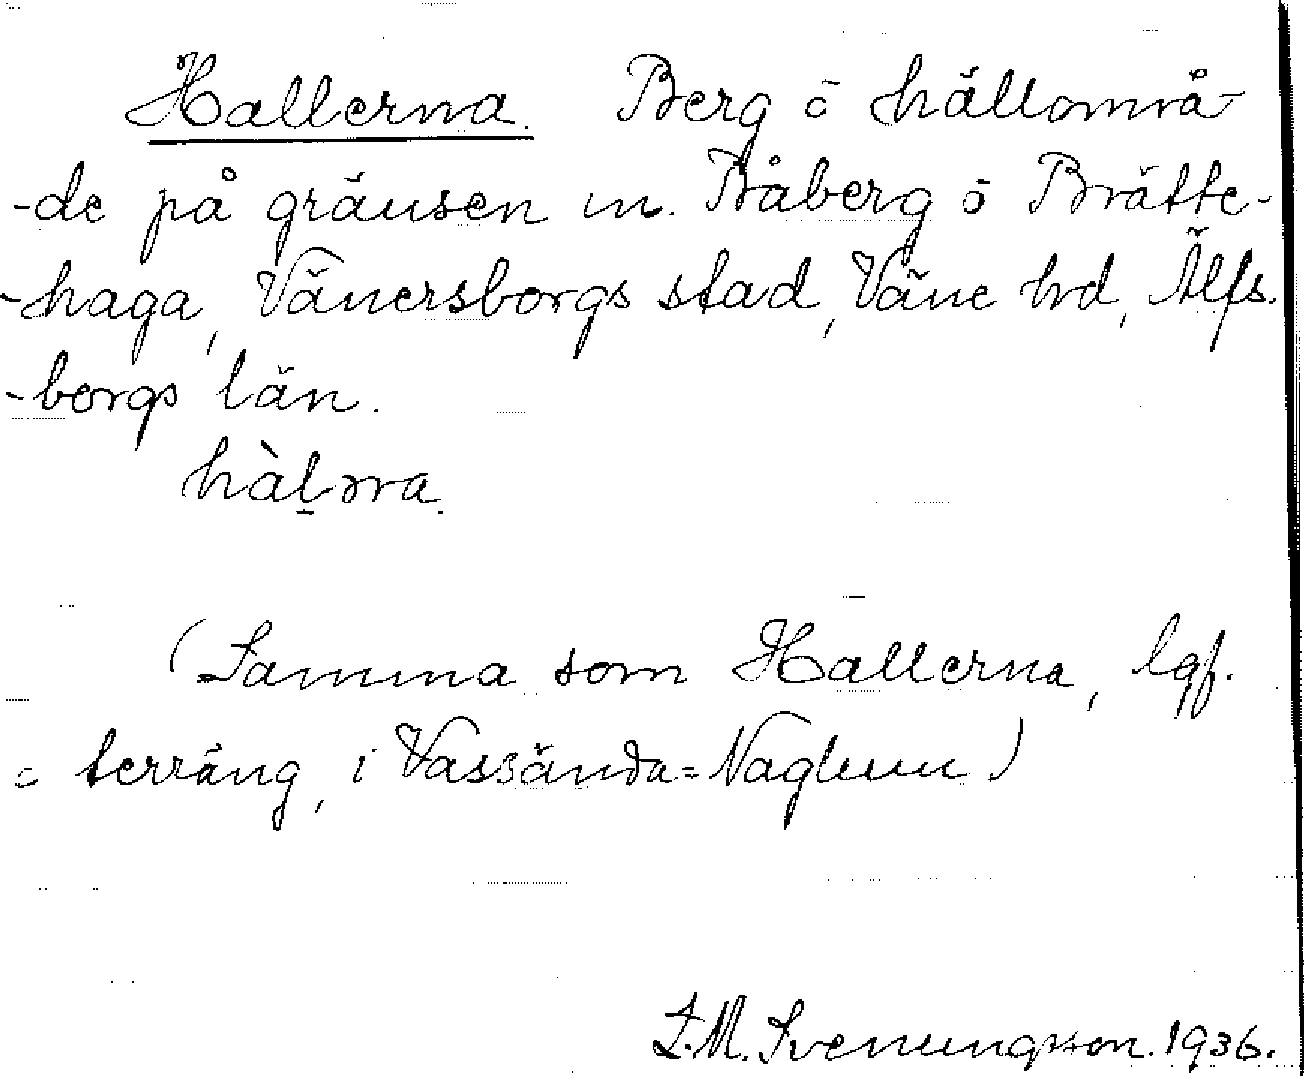 Hallerna. Berg ō hällområ-
-de på gränsen m. Blåberg ō Brätte-
-haga, Vänersborgs stad, Väne hrd, Älfs-
-borgs län.
hàḻəra.
(Samma som Hallerna, lqf.
= terräng, i Vassända=Naglum)
L.M. Svenungsson. 1936.